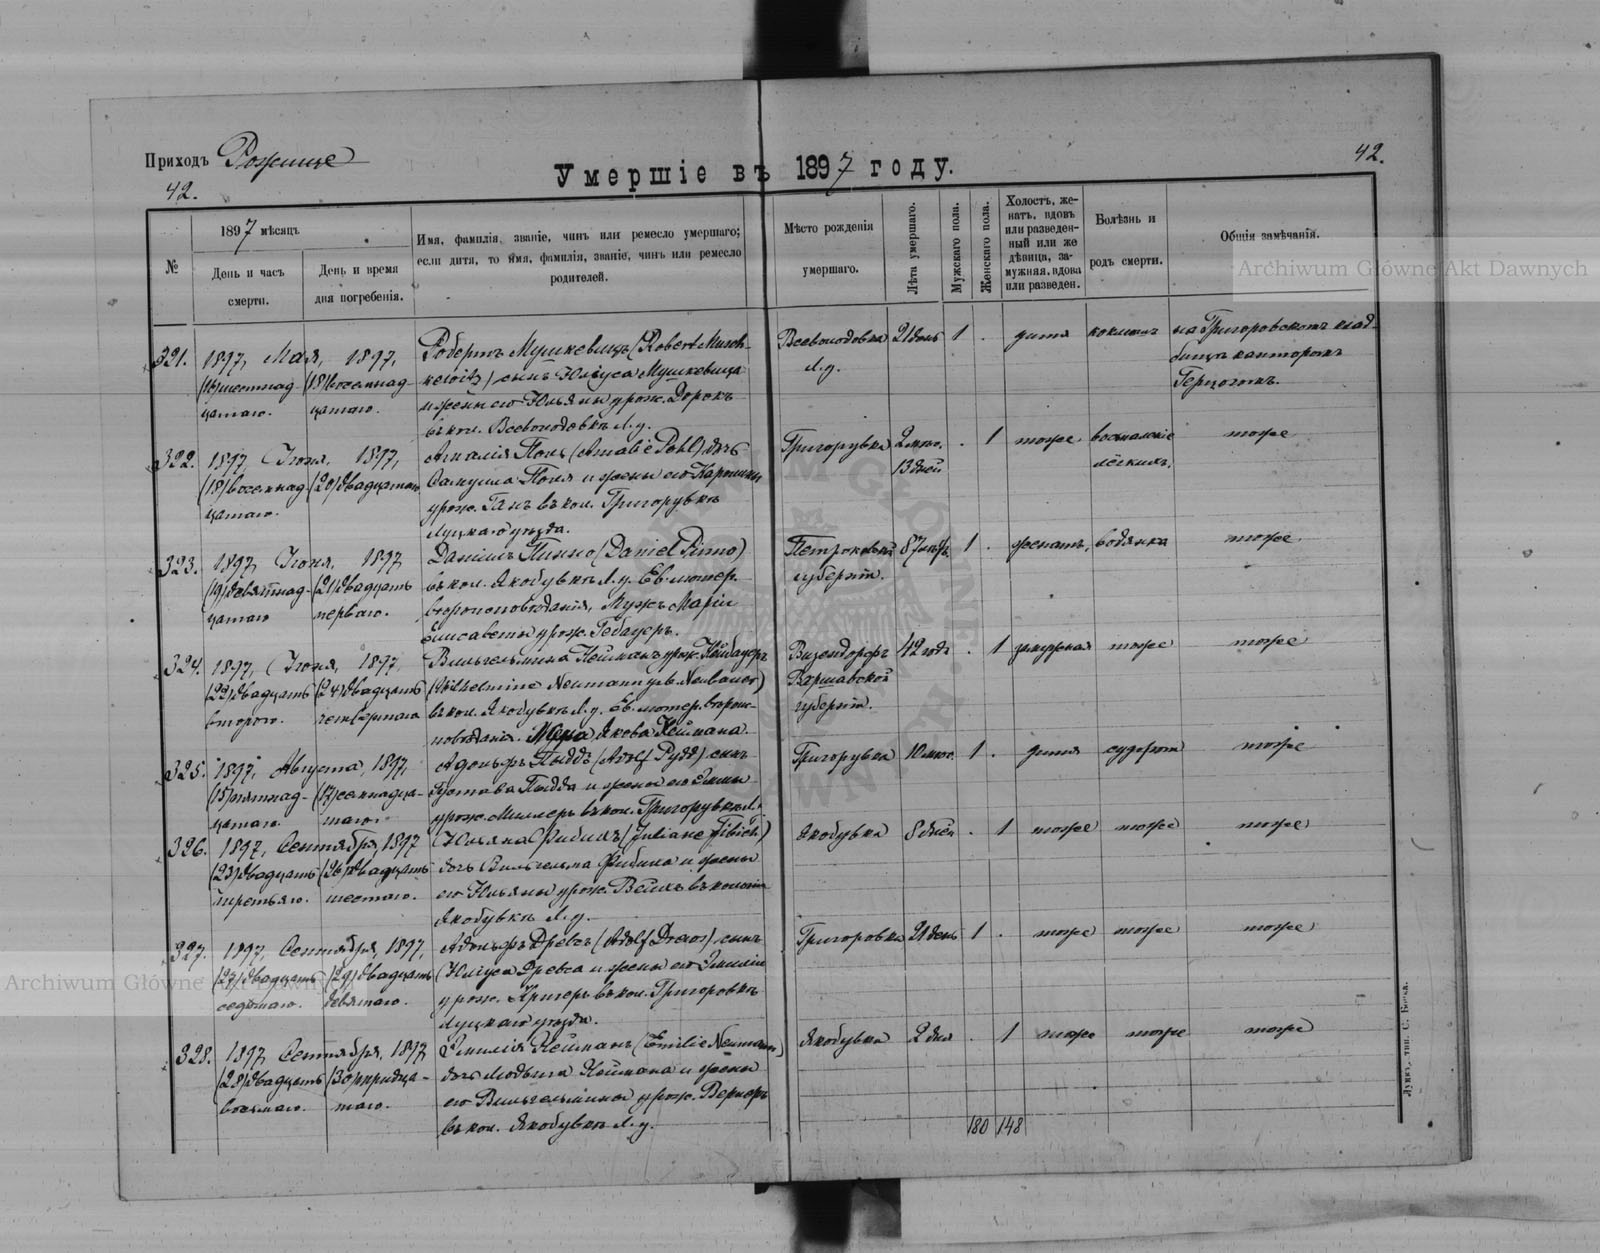 Приходъ Рожище
42.
Умершіе въ 1897 году.
42.
№
1897 мѣсяцъ
День и часъ
смерти.
День и время
дня погребенія.
Имя, фамилія, званіе, чинъ или ремесло умершаго;
если дитя, то имя, фамилія, званіе, чинъ или ремесло
родителей.
Мѣсто рожденія
умершаго.
Лѣта умершаго.
Мужскаго пола.
Женскаго пола.
Холостъ, же-
натъ, вдовъ
или разведен-
ный или же
дѣвица, за-
мужняя, вдова
или разведен.
Болѣзнь и
родъ смерти.
Общія замѣчанія.
Archiwum Główne Akt Dawnych
321.
1897, Мая, 1897,
(16) шестнад-
цатаго.
(18) восемнад-
цатаго.
Робертъ Мушкевицъ (Robert Musch-
kewitz) сынъ Юліуса Мушкевица
и жены его Юльяны урож. Дорокъ
въ кол. Всеволодовкѣ Л. у.
Всеволодовка
Л. у.
21 день
1
.
дитя
коклюшъ
на Григоровскомъ клад-
бищѣ канторомъ
Герцогомъ.
322.
1897, Іюня, 1897,
(18) восемнад-
цатаго.
(20) двадцатаго
Амалія Поль (Amalie Pohl) дочь
Самуила Поля и жены его Каролины
урож. Ганъ въ кол. Григорувкѣ
Луцкаго уѣзда.
Григорувка
2 мѣс.
13 дней
.
1
тоже
воспаленіе
лёгкихъ.
тоже
323.
1897, Іюня, 1897
(19) девятнад-
цатаго
(21) двадцать
перваго.
Даніилъ Пинно (Daniel Pinno)
въ кол. Якобувкѣ Л. у. Ев. лютер.
вѣроисповѣданія, Мужъ Маріи
Елисаветы урож. Гебауеръ.
Петроковск.
губерніи.
87 лѣтъ
1
.
женатъ,
водянка
тоже
324.
1897, Іюня, 1897
(22) двадцать
второго.
(24) двадцать
четвертаго
Вильгельмина Нейманъ урож. Нейбауеръ
(Wilhelmine Neumann geb. Neubauer)
въ кол. Якобувкѣ Л. у. Ев. лютер. вѣроис-
повѣданія. Жена Якова Неймана.
Визендорфъ
Варшавской
губерніи.
42 года
.
1
замужняя
тоже
тоже
325.
1897, Августа, 1897,
(15) пятнад-
цатаго.
(17) семнадца-
таго.
Адольфъ Пыддъ (Adolf Pydd) сынъ
Густава Пыдда и жены его Эммы
урож. Миллеръ въ кол. Григорувкѣ Л. у.
Григорувка
10 мѣс.
1
.
дитя
судороги
тоже
326.
1897, Сентября, 1897
(23) двадцать
третьяго.
(26) двадцать
шестаго.
Юльяна Фибихъ (Juliane Fibich)
дочь Вильгельма Фибиха и жены
его Юльяны урож. Вейхъ въ колоніи
Якобувкѣ Л. у.
Якобувка
8 дней
.
1
тоже
тоже
тоже
327.
1897, Сентября, 1897,
(27) двадцать
седьмаго.
(29) двадцать
девятаго.
Адольфъ Древсъ (Adolf Drews) сынъ
Юліуса Древса и жены его Эмиліи
урож. Кригеръ въ кол. Григоровкѣ
Луцкаго уѣзда.
Григоровка
21 день
1
.
тоже
тоже
тоже
Archiwum Główne Akt Dawnych
328.
1897 Сентября, 1897
(28) двадцать
восьмаго.
(30) тридца-
таго.
Эмилія Нейманъ (Emilie Neumann)
дочь Людвига Неймана и жены
его Вильгельмины урож. Вернеръ
въ кол. Якобувкѣ Л. у.
Якобувка
2 дня
.
1
тоже
тоже
тоже
180
148